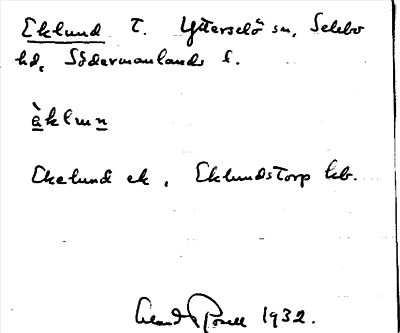 Eklund T. Ytterselö sn, Selebo
hd, Södermanlands l.
èklun
Ekelund ek, Eklundstorp kb.
1932.